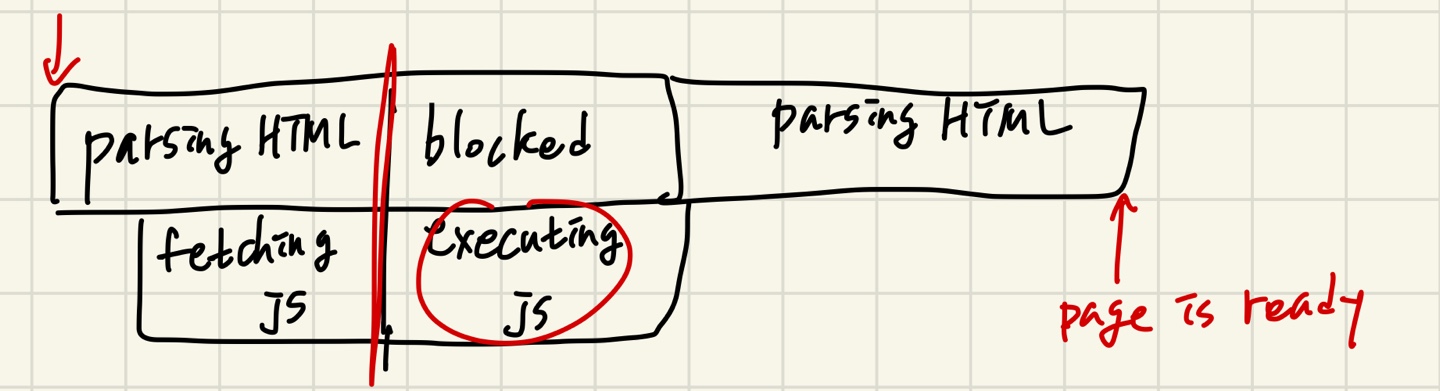 parsing HTML
blocked
parsing HTML
fetching
js
executing
js
page is ready